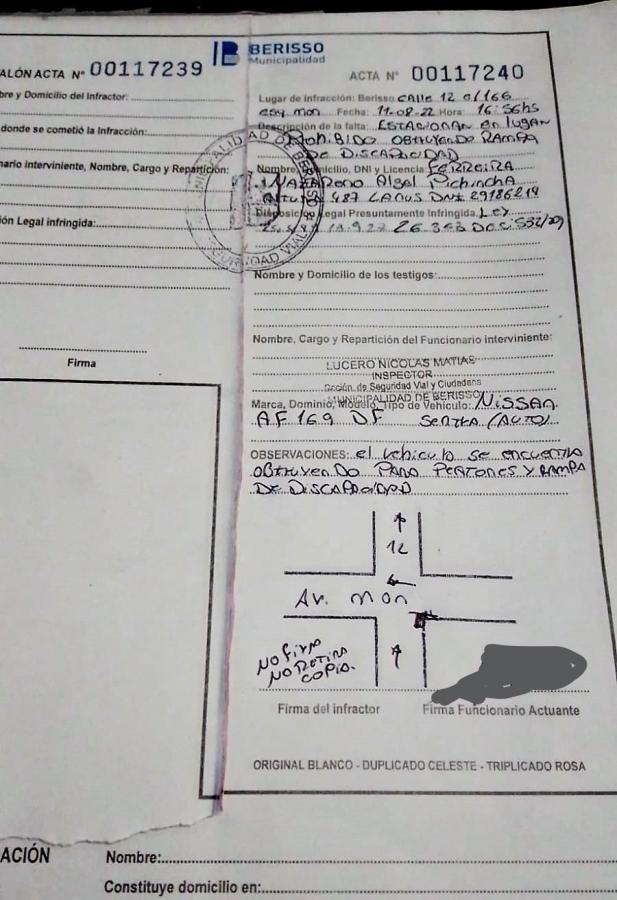 BERISSO
Municipalidad
ALÓN ACTA N° 00117239
re y Domicilio del Infractor:
donde se cometió la Infracción:
nario interviniente, Nombre, Cargo y Repartición:
ión Legal infringida:
Firma
ACTA N° 00117240
Lugar de infracción: Berisso CALLE 12 e/166
esq mon Fecha: 11-08-22 Hora: 16:56hs
Descripción de la falta: ESTACIONAR en lugar
PROHIBIDO OBTRUYENDO RAMPA
DE DISCAPACIDAD
Nombre, Domicilio, DNI y Licencia FERREIRA
NAZARENO Pichincha
ALTURA 487 LANUS DNI 29186214
Disposición Legal Presuntamente Infringida: Ley
13.927 26.363 DEC 532/09
Nombre y Domicilio de los testigos:
Nombre, Cargo y Repartición del Funcionario interviniente:
LUCERO NICOLAS MATIAS
INSPECTOR
Dcción. de Seguridad Vial y Ciudadana
MUNICIPALIDAD DE BERISSO
Marca, Dominio, Modelo, Tipo de Vehículo: NISSAN
AF 169 DF SENTRA (AUTO)
OBSERVACIONES: el vehiculo se encuentra
OBTRUYENDO PASO PEATONES Y RAMPA
DE DISCAPACIDAD
12
Av. mon
NO FIRMA
NO RETIRA
COPIA.
Firma del infractor
Firma Funcionario Actuante
ORIGINAL BLANCO - DUPLICADO CELESTE - TRIPLICADO ROSA
MUNICIPALIDAD DE BERISSO
SEGURIDAD VIAL
ACIÓN
Nombre:
Constituye domicilio en: